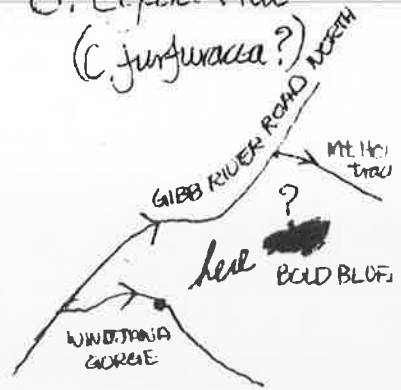 (C. furfuracea?)
GIBB RIVER ROAD NORTH
Mt. Ho
trac
?
here
BOLD BLUF
WINDJANA
GORGE